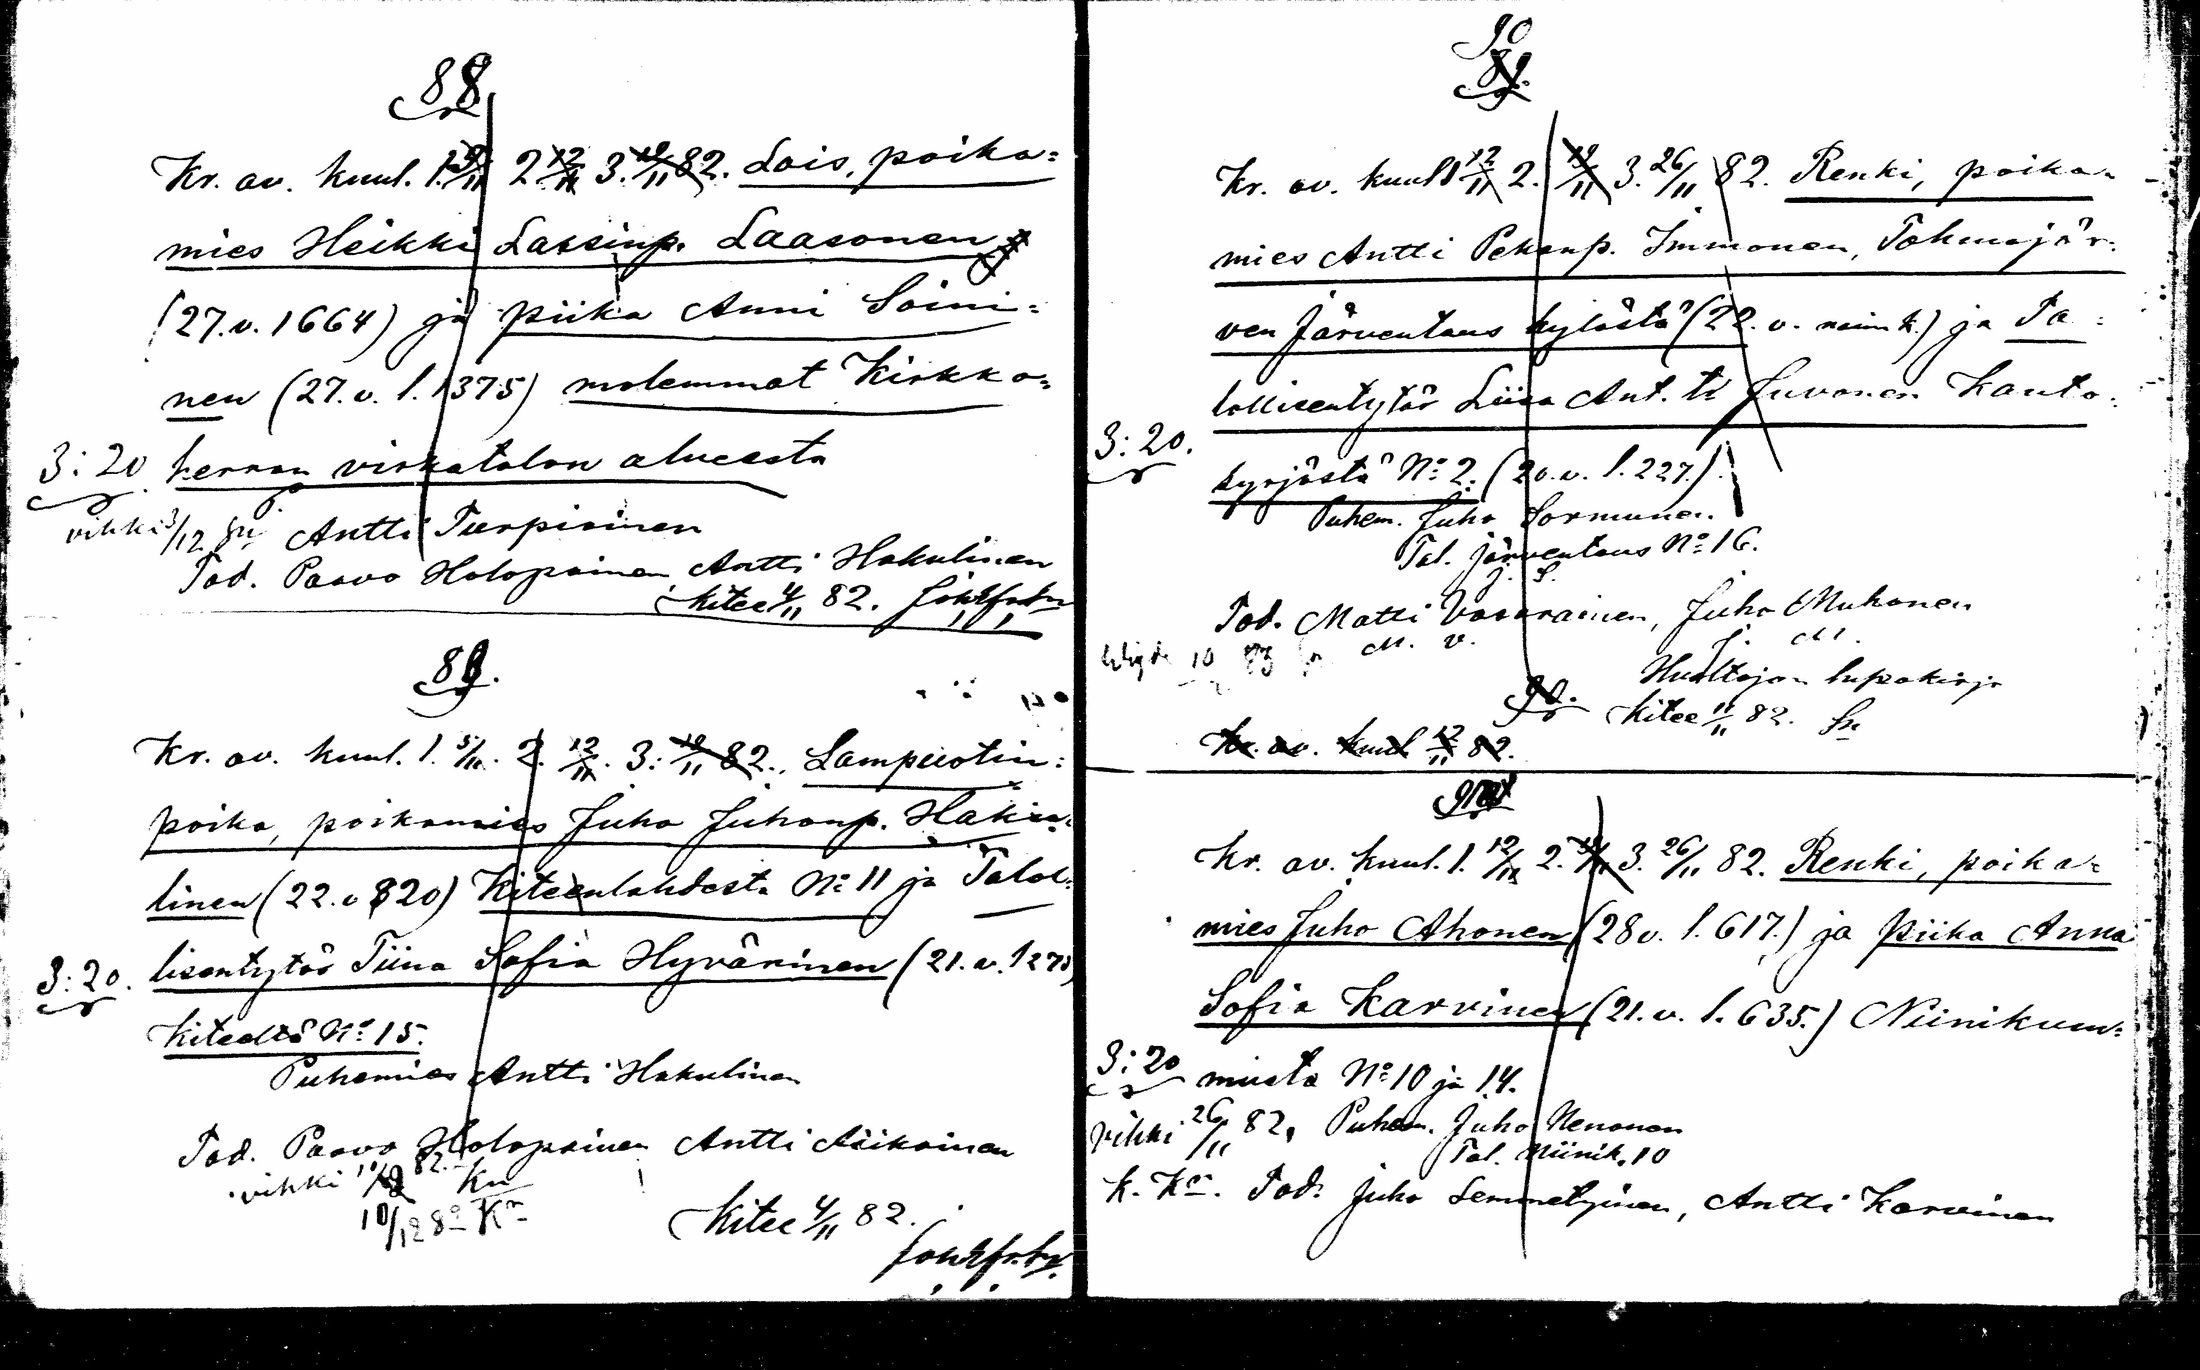 88.
Kr. av. kuul. 1. 5/11 2. 12/11 3. 19/11 82. Lois, poika=
mies Heikki Lassinp. Laasonen
(27. v. 1664) ja piika Anni Soini=
nen (27. v. l. 1375) molemmat Kirkko=
3:20 herran virkatalon alueesta
vihki 3/12 Antti Turpiainen
Tod. Paavo Holopainen Antti Hakulinen
Kitee 4/11 82.
89.
Kr. av. kuul. 1. 5/11. 2. 12/11. 3: 19/11 82. Lampuotin=
poika, poikamies Juho Juhonp. Haku=
linen (22. v 820) Kiteenlahdesta No 11 ja Talol=
3:20. lisentytär Tiina Sofia Hyvärinen (21. v.
Kiteeltä No 15.
Puhemies Antti Hakulinen
Tod. Paavo Holopainen Antti Äikäinen
vihki 82. Kn
10/12 82 Kn
Kitee 4/11 82.
90
89.
Kr. av. kuul 1 12/11 2. 19/11 3. 26/11 82. Renki, poika=
mies Antti Pekanp. Immonen, Tohmajär=
ven Järventaus kylästä (22. v. naim k.) ja Ta=
lollisentytär Liisa Ant. tr Juvonen Kanto=
3:20. kyrjästä No 2. (20. v. l. 227.)
Puhem. Juho Sormunen
Tal. Järventaus No 16.
J. S.
Tod. Matti Vaaarainen, Juho Muhonen
M. V. J. M.
Huoltajan lupakirja
90. Kitee 11/11 82.
Kr. av. kuul 12/11 82.
Kr. av. kuul. 1. 12/11 2. 19/11 3. 26/11 82. Renki, poika=
mies Juho Ahonen (28 v. l. 617.) ja piika Anna
Sofia Karvinen (21. v. l. 635.) Niinikum=
3:20 musta No 10 ja 14.
vihki 26/11 82, Puhem. Juho Nenonen
Tal. Niinik. 10
K. Kn. Tod. Juho Lemmetyinen, Antti Karvinen